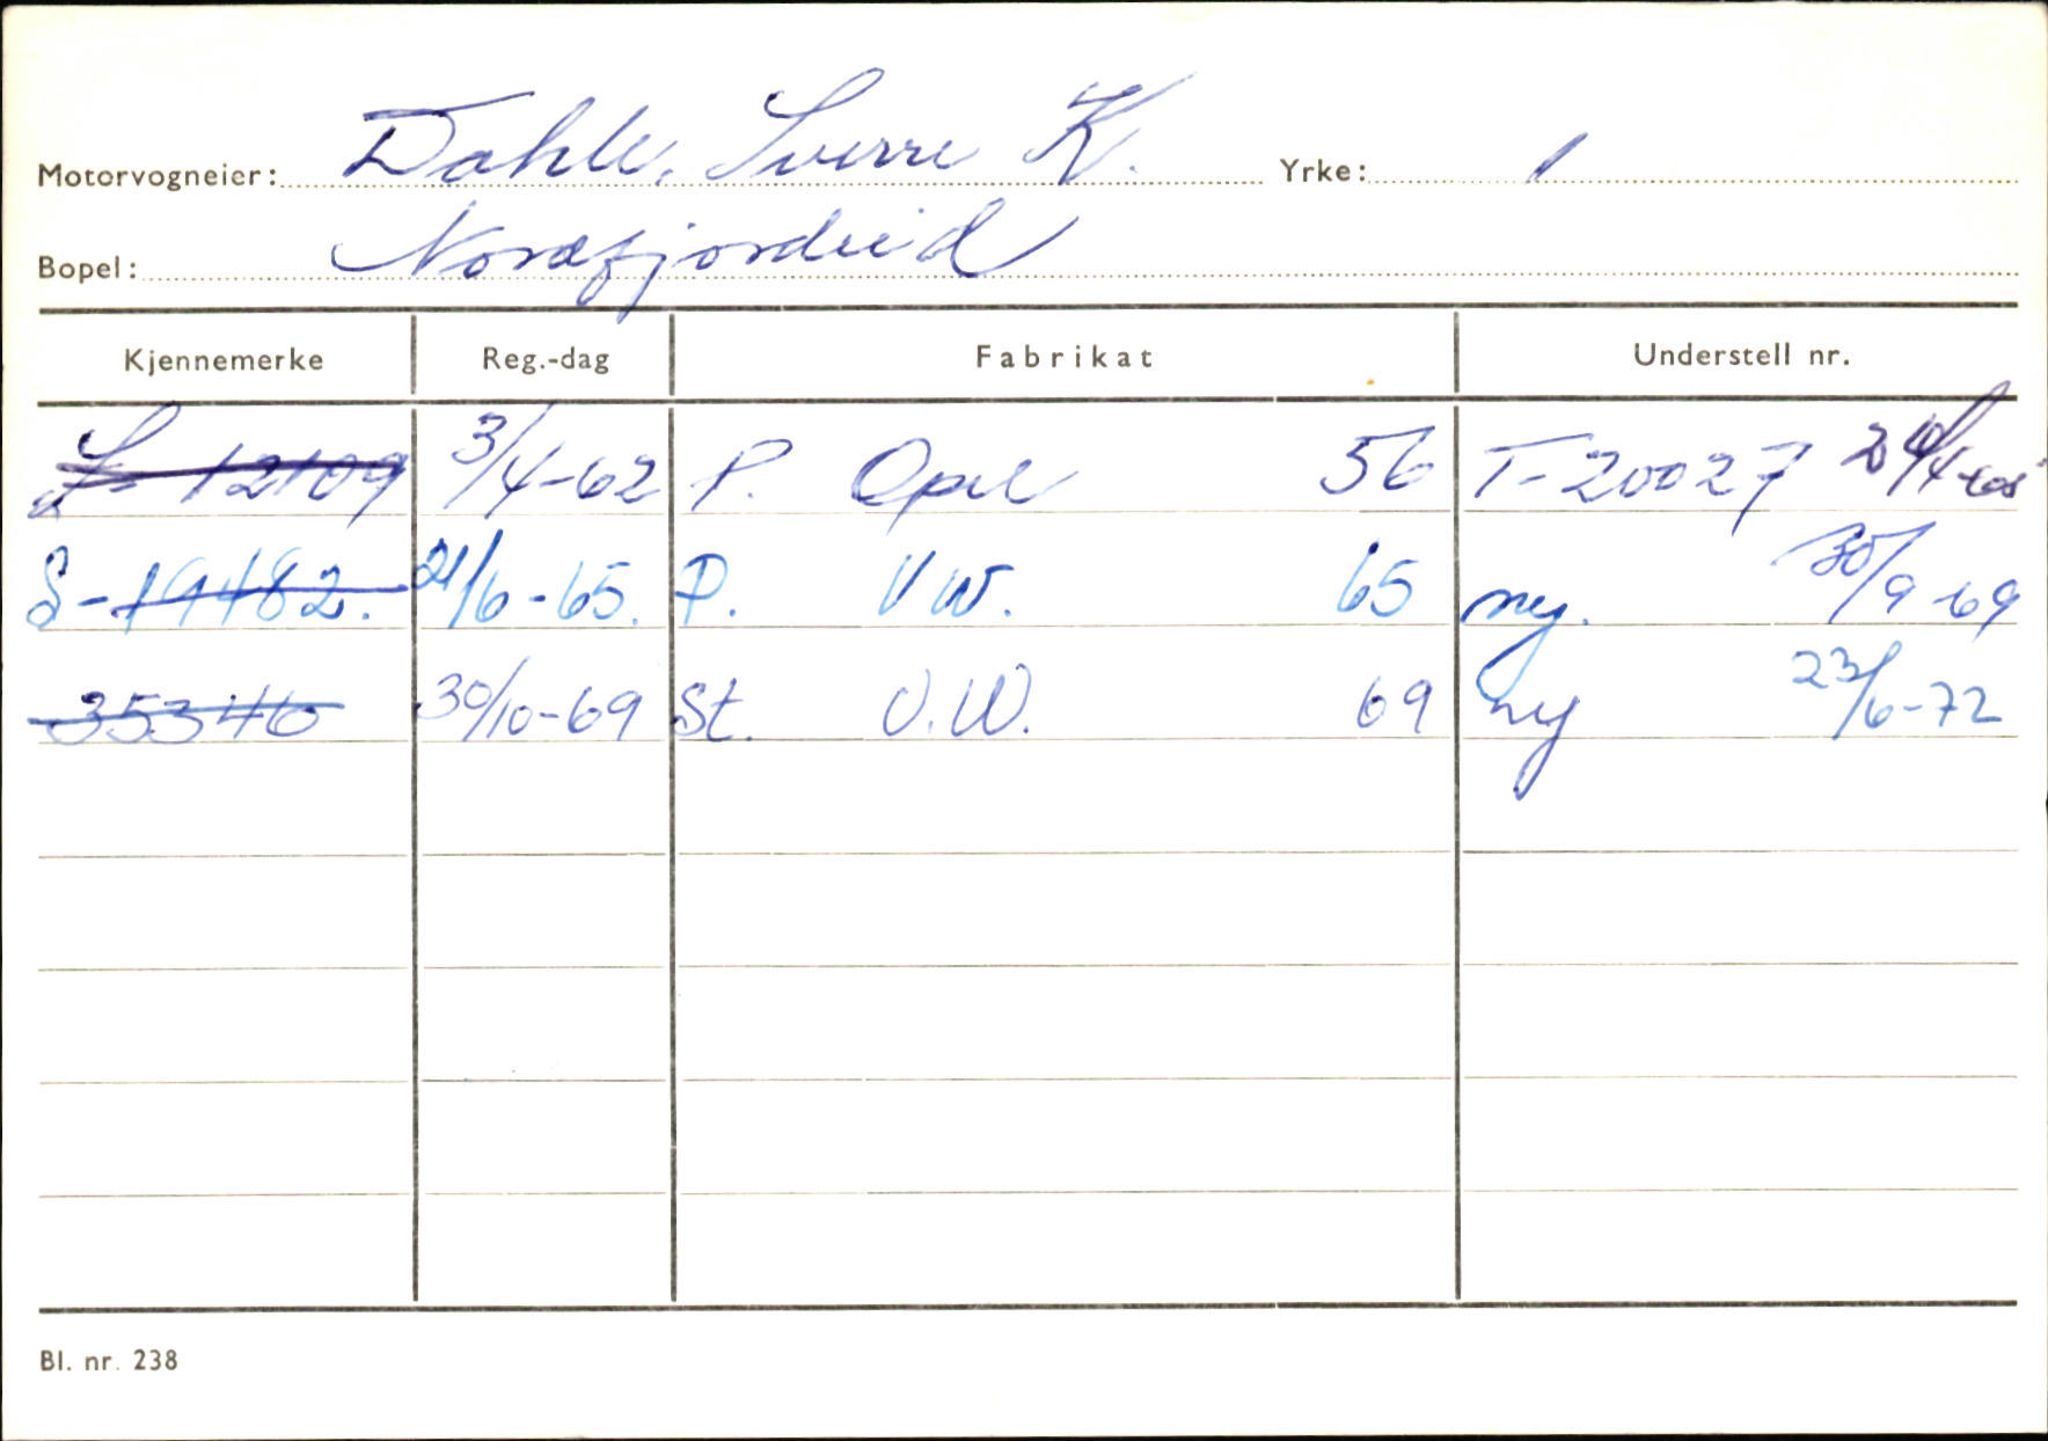 Motorvogneier: Dahle, Sverre K. Yrke: 1
Bopel: Nordfjordeid
Kjennemerke Reg.-dag Fabrikat Understell nr.
S-12109 3/4-62 P. Opel 56 T-20027 24/4-65
S-19482. 21/6-65. P. V W. 65 ny. 30/9-69
35340 30/10-69 St. V.W. 69 ny 23/6-72
Bl. nr. 238